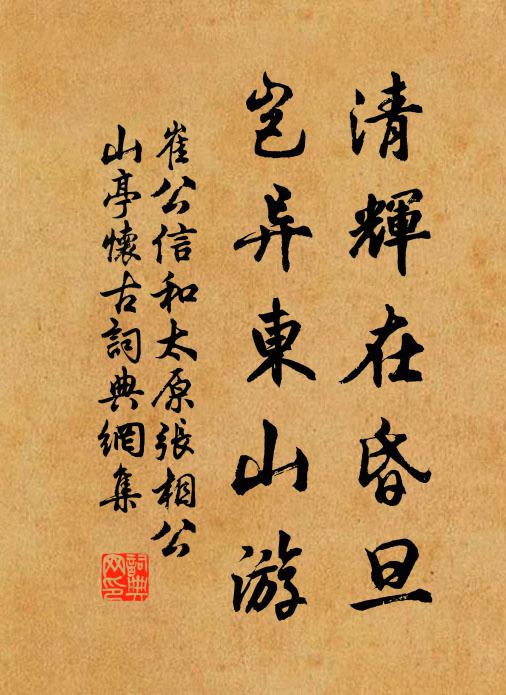 清輝在昏旦
豈异東山游
崔公信和太原張相公
山亭懷古詞典網集
詞典網印